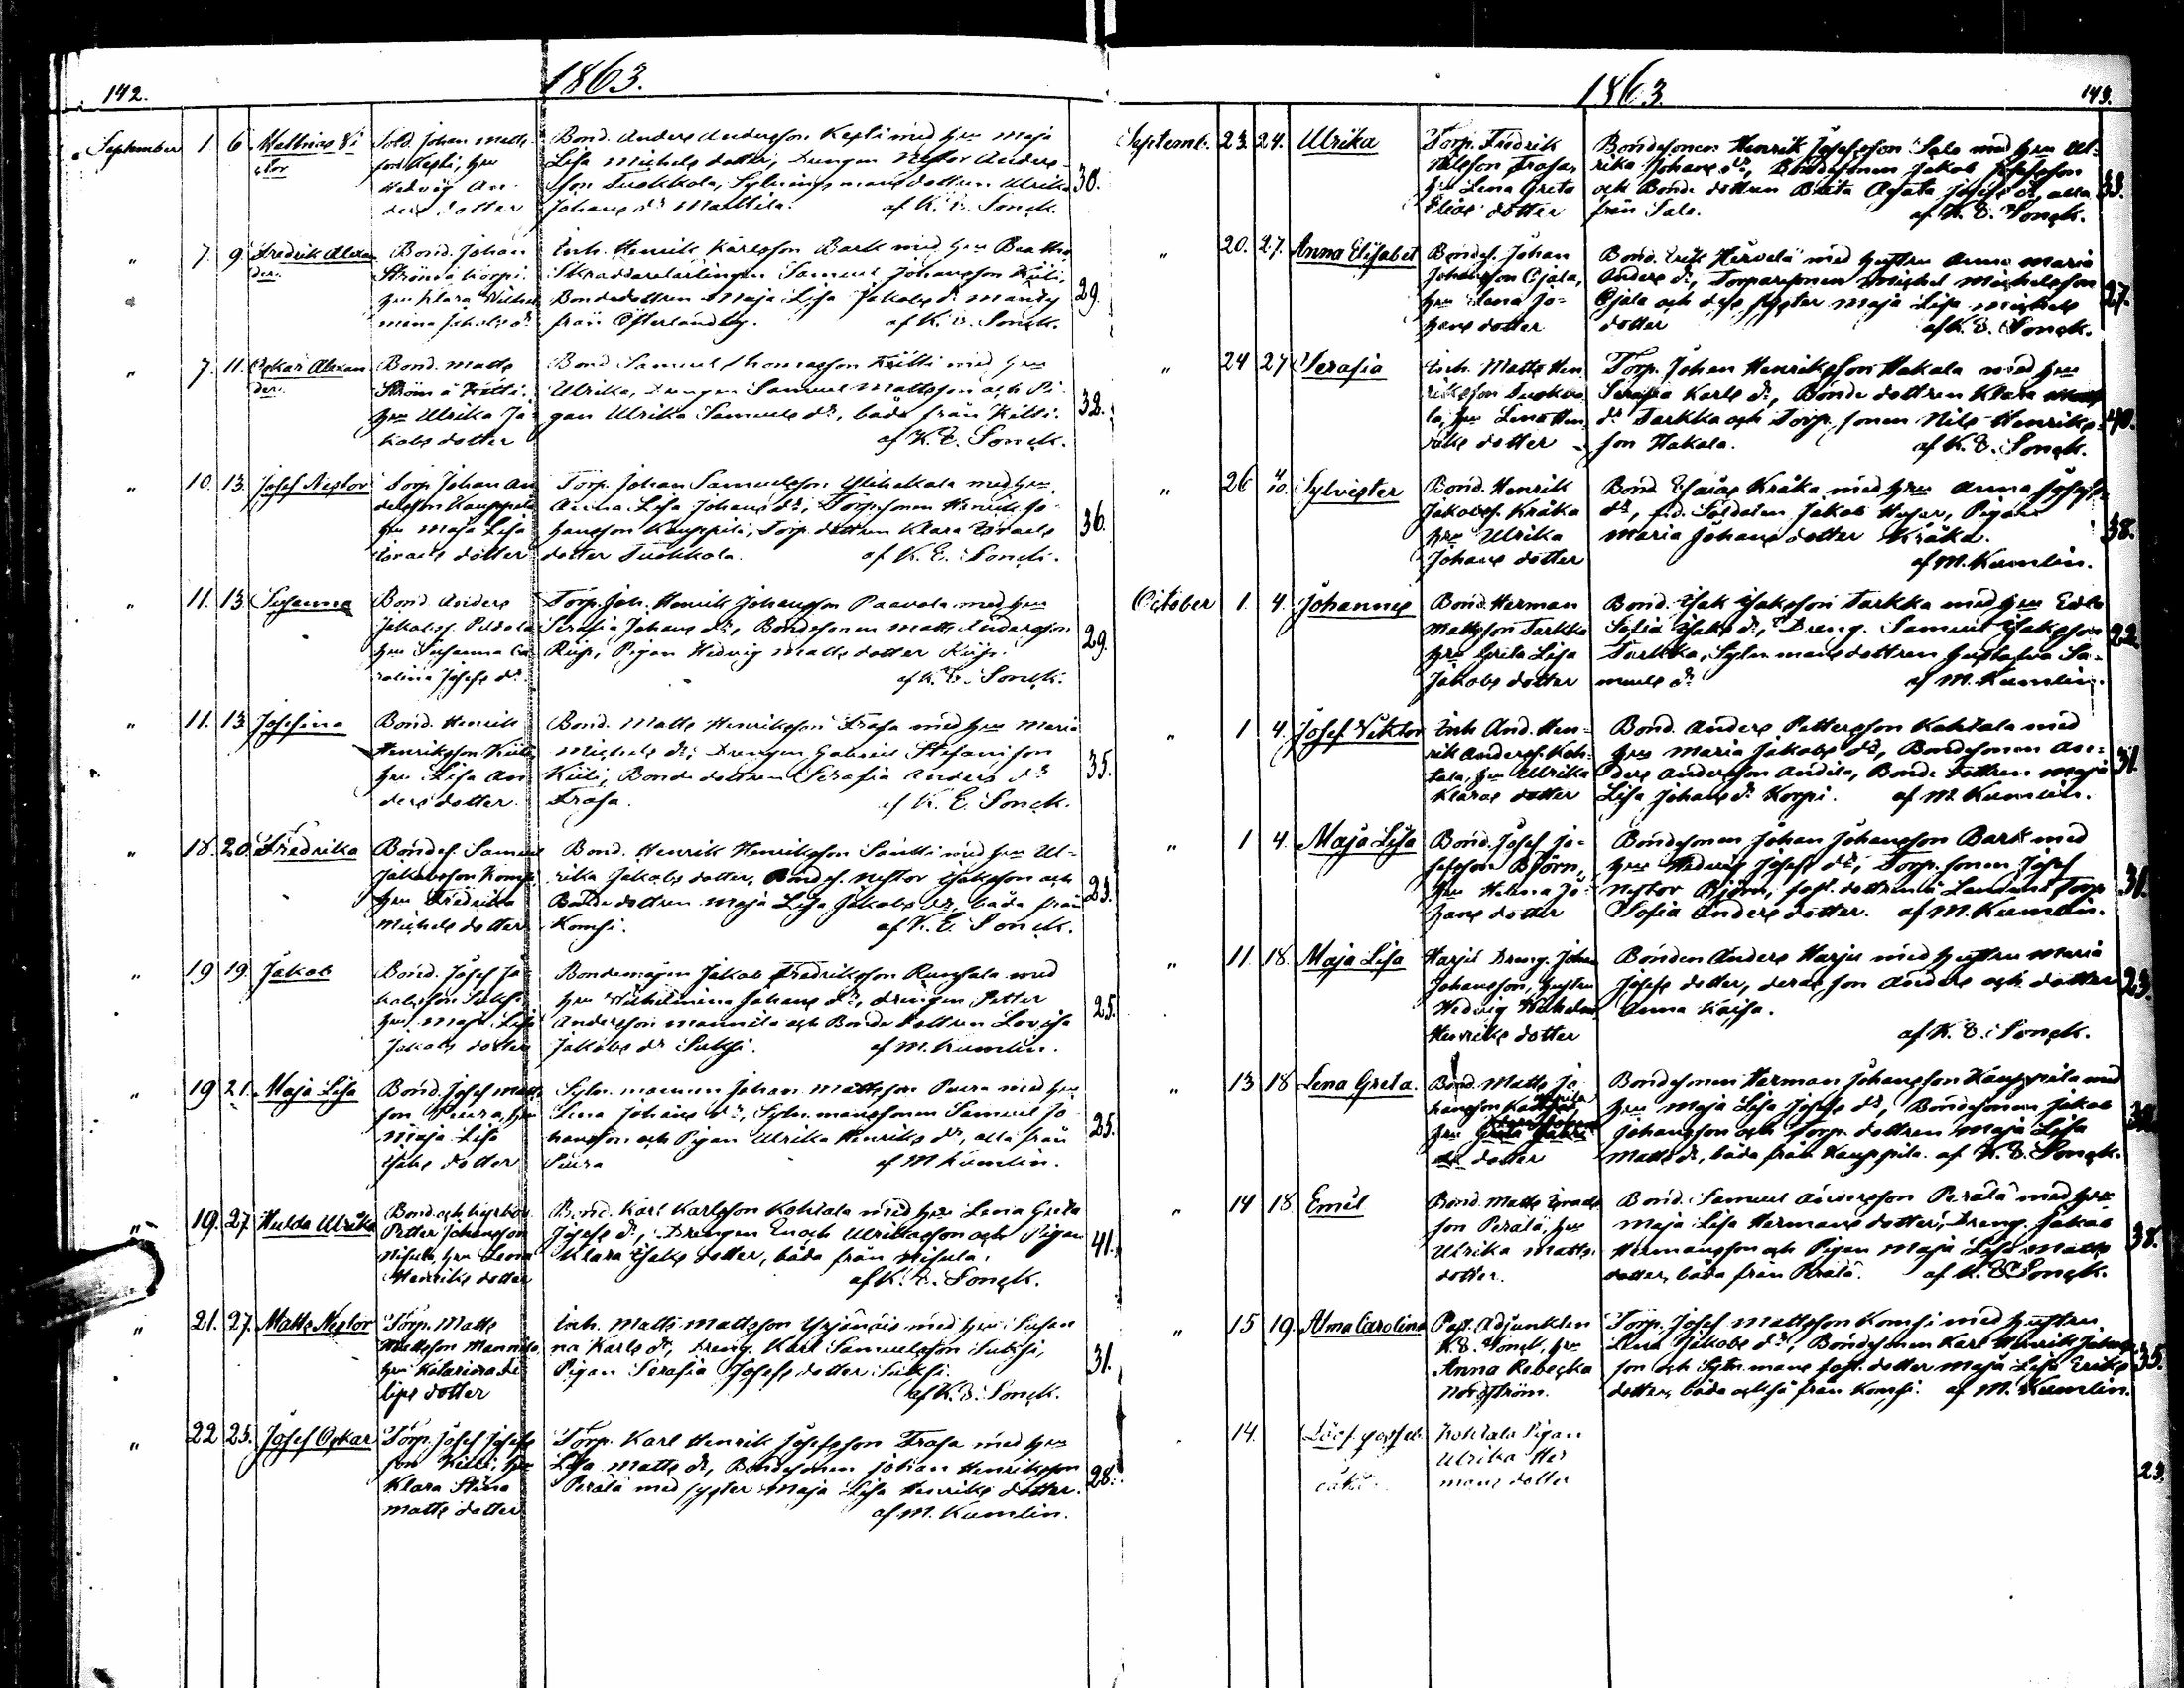 142.
1863.
September 1 6 Mathias Vi
ctor
Sold. Johan Matts
son Kesti, hru
Hedvig An
ders dotter
Bond. Anders Andersson Kesti med hru Maja
Lisa Michels dotter, Drengen Nestor Anders
son Tuokkola, Sytningsmans dottren Ulrika
Johans dr Mattila. af K. E. Sonck.
30.
" 7. 9 Fredrik Alexan
der.
Bond. Johan
Ström å Korpi.
hru Klara Wilhel
mina Jakobs dr
Inh. Henrik Karlsson Bark med hru Beatha
Skräddarelärlingen Samuel Johansson Kiili,
Bondedottren Maja Lisa Jakobs dr
från Österlandby. af K. E. Sonck.
29.
" 7. 11. Oskar Alexan
der.
Bond. Matts
Ström å
hru Ulrika Ja
kobs dotter
Bond Samuel Thomasson med hru
Ulrika, Drengen Samuel Mattsson och Pi
gan Ulrika Samuels dr, båda från
af K. E. Sonck.
32.
" 10. 13. Josef Nestor
Torp. Johan An
dersson Kauppila
hru Maja Lisa
Israels dotter
Torp. Johan Samuelsson Ylihakala med hru
Anna Lisa Johans dr, Torp. sonen Henrik Jo
hansson Kauppila, Torp. dottren Klara Israels
dotter Tuokkola. af K. E. Sonck.
36.
" 11. 13. Susanna
Bond. Anders
Jakobss.
hru Susanna Ca
rolina Josefs dr
Torp. Joh. Henrik Johansson Paavola med hru
Serafia Johans dr, Bondesonen Matts Andersson
Pigan Hedvig Matts dotter
af K. E. Sonck.
29.
" 11. 13 Josefina
Bond. Henrik
Henriksson Kiili
hru Lisa An
ders dotter.
Bond. Matts Henriksson Frasa med hru Maria
Michels dr, Drengen Gabriel Stefansson
Kiili, Bonde dottren Serafia Anders dr
Frasa. af K. E. Sonck.
35.
" 18. 20. Fredrika
Bondes. Samuel
Jakobsson Komsi,
hru Fredrika
Michels dotter
Bond. Henrik Henriksson Santti med hru Ul-
rika Jakobs dotter, Bondes. Nestor Isaksson och
Bondedottren Maja Lisa Jakobs dr, båda från
Komsi. af K. E. Sonck.
23.
" 19 19. Jakob
Bond. Josef Ja
kobsson Suksi,
hru Maja Lisa
Jakobs dotter
Bondemågen Jakob Fredriksson med
hru Wilhelmina Johans dr, Drengen Petter
Andersson Mannila och Bonde dottren Lovisa
Jakobs dr Suksi. af M. Kumlin.
25.
" 19 21. Maja Lisa
Bond. Josef Matts
son Peura, hru
Maja Lisa
Isaks dotter
Sytn. mannen Johan Mattsson Peura med hru
Lena Johans dr, Sytn. manssonen Samuel Jo
hansson och Pigan Ulrika Henriks dr, alla från
Peura af M Kumlin.
25.
" 19. 27. Hulda Ulrika
Bond. och Kyrkov.
Petter Johansson
Nisula, hru Lena
Henriks dotter
Bond. Karl Karlsson Kohtala med hru Lena Greta
Josefs dr, Drengen Enoch Ulriksson och Pigan
Klara Isaks dotter, båda från Nisula.
af K. E. Sonck.
41.
" 21. 27. Matts Nestor
Torp. Matts
Mattsson Mannila,
hru Katarina Fi
lips dotter
Inh. Matts Mattsson med hru Susan
na Karls dr, Dreng. Karl Samuelsson Suksi,
Pigan Serafia Josefs dotter Suksi.
af K. E. Sonck.
31.
" 22 25. Josef Oskar
Torp. Josef Josefs
son hru
Klara Stina
Matts dotter
Torp. Karl Henrik Josefsson Frasa med hru
Lisa Matts dr, Bondesonen Johan Henriksson
Perälä med syster Maja Lisa Henriks dotter.
af M. Kumlin.
28.
1863.
143.
Septemb. 23. 24. Ulrika
Torp. Fredrik
Nilsson Frasa,
hru Lena Greta
Elias dotter
Bondesonen Henrik Josefsson Salo med hru Ul-
rika Johans dr, Bondesonen Jakob Josefsson
och Bonde dottren Brita Agata Josefs dr, alla
från Salo. af K. E. Sonck.
33.
" 20. 27. Anna Elisabet
Bondes. Johan
Johansson Ojala,
hru Lena Jo-
hans dotter
Bond. Erik Hervelä med hustru Anna Maria
Anders dr, Torparesonen Michel Michelsson
Ojala och dess syster Maja Lisa Michels
dotter af K. E. Sonck.
27.
" 24 27 Serafia
Inh. Matts Hen
riksson Tuokko
la, hru Lena Hen
riks dotter
Torp. Johan Henriksson Hakala med hru
Serafia Karls dr, Bonde dottren Klara
dr Tarkka och Torp. sonen Nils Henriks-
son Hakala. af K. E. Sonck.
40.
" 26 4/10. Sylvester
Bond. Henrik
Jakobss. Kråka
hru Ulrika
Johans dotter
Bond. Esaias Kråka med hru Anna Josefs
dr, f.d. Soldaten Jakob Pigan
Maria Johans dotter Kråka.
af M. Kumlin.
38.
October 1. 4. Johannes
Bond. Herman
Mattsson Tarkka
hru Greta Lisa
Jakobs dotter
Bond. Isak Isaksson Tarkka med hru Edla
Sofia Isaks dr, Dreng. Samuel Isaksson
Tarkka, Sytn. mans dottren Gustafva Sa-
muels dr af M. Kumlin.
22.
" 1 4. Josef Viktor
Inh. And. Hen-
rik Anderss. Koh-
tala, hru Ulrika
Klaras dotter
Bond. Anders Pettersson Kohtala med
hru Maria Jakobs dr, Bondesonen An-
ders Andersson Andila, Bonde dottren Maja
Lisa Johans dr Korpi. af M. Kumlin.
31.
" 1 4. Maja Lisa
Bond. Josef Jo-
sefsson Björn,
hru Helena Jo-
hans dotter
Bondesonen Johan Johansson Bark med
hru Hedvig Josefs dr, Torp. sonen Josef
Nestor Björn, fost. dottren å Torp
Sofia Anders dotter. af M. Kumlin.
31.
" 11. 18. Maja Lisa
Harju Dreng. Johan
Johansson, hustru
Hedvig Wilhelm.
Henriks dotter
Bonden Anders Harju med hustru Maria
Josefs dotter, deras son Anders och dotter
Anna Kaisa.
af K. E. Sonck.
23.
" 13 18 Lena Greta.
Bond. Matts Jo
hansson
hru
dotter
Bondesonen Herman Johansson Kauppila med
hru Maja Lisa Josefs dr, Bondesonen Jakob
Johansson och Torp. dottren Maja Lisa
Matts dr, båda från Kauppila. af K. E. Sonck.
" 14 18. Emil
Bond. Matts Israels
son Perälä, hru
Ulrika Matts
dotter.
Bond. Samuel Andersson Perälä med hru
Maja Lisa Hermans dotter, Dreng. Jakob
Hermansson och Pigan Maja Lisa Matts
dotter, båda från Perälä. af K. E. Sonck.
38.
" 15 19. Alma Carolina
Past. Adjunkten
K. E. Sonck, hru
Anna Rebecka
Nordström.
Torp. Josef Mattsson Komsi med hustru
Lena Jakobs dr, Bondesonen Karl Henrik Johans
son och Sytn. mans fost. dotter Maja Lisa Eriks
dotter, båda från Komsi. af M. Kumlin.
35.
14.
Kohtala Pigan
Ulrika Her
mans dotter
23.